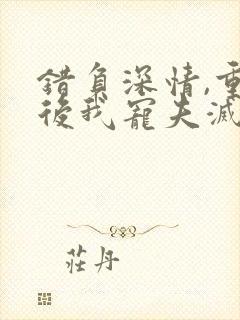 錯負深情,重
後我寵夫滅
莊丹